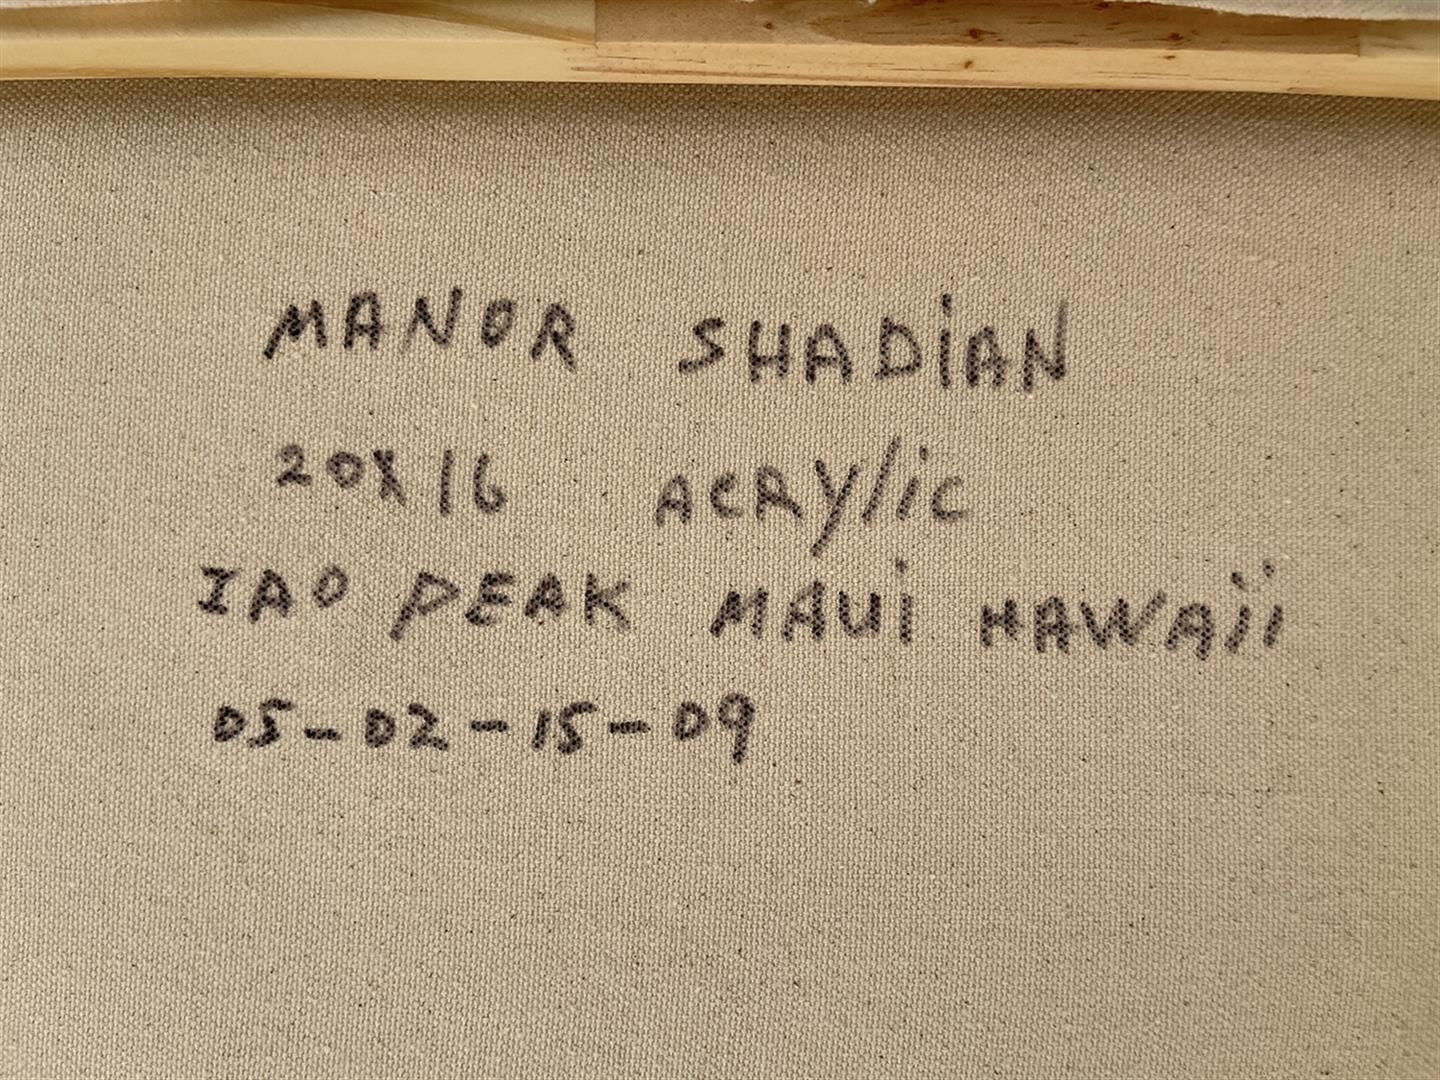 MANOR SHADiAN
20X16 ACRYlic
IAO PEAK MAUi HAWAii
05-02-15-09